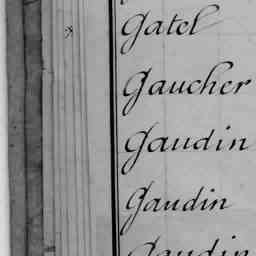 Gatel
Gaucher
Gaudin
Gaudin
Gaudin